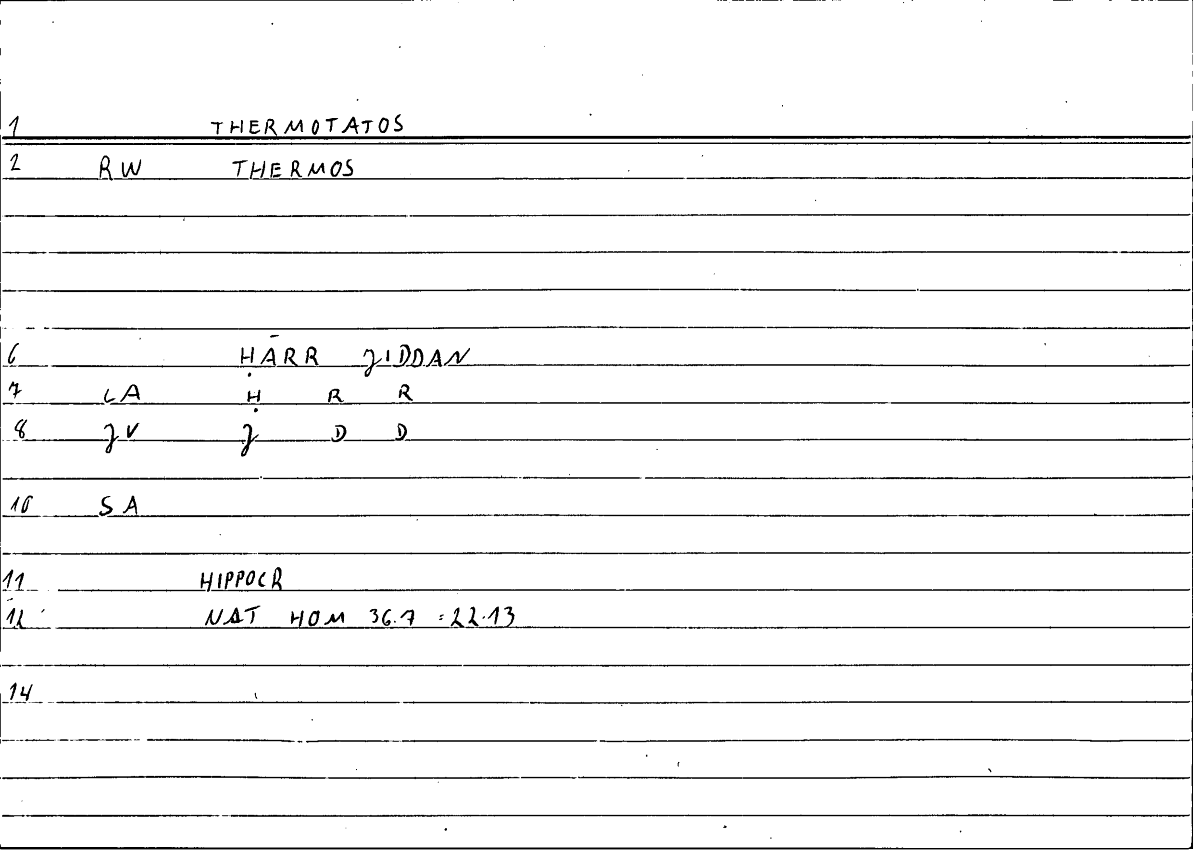 1 THERMOTATOS
2 RW THERMOS
6 ḤĀRR ǦIDDAN
7 LA Ḥ R R
8 ǦV Ǧ D D
10 SA
11 HIPPOCR
12 NAT HOM 36.7 = 22.13
14